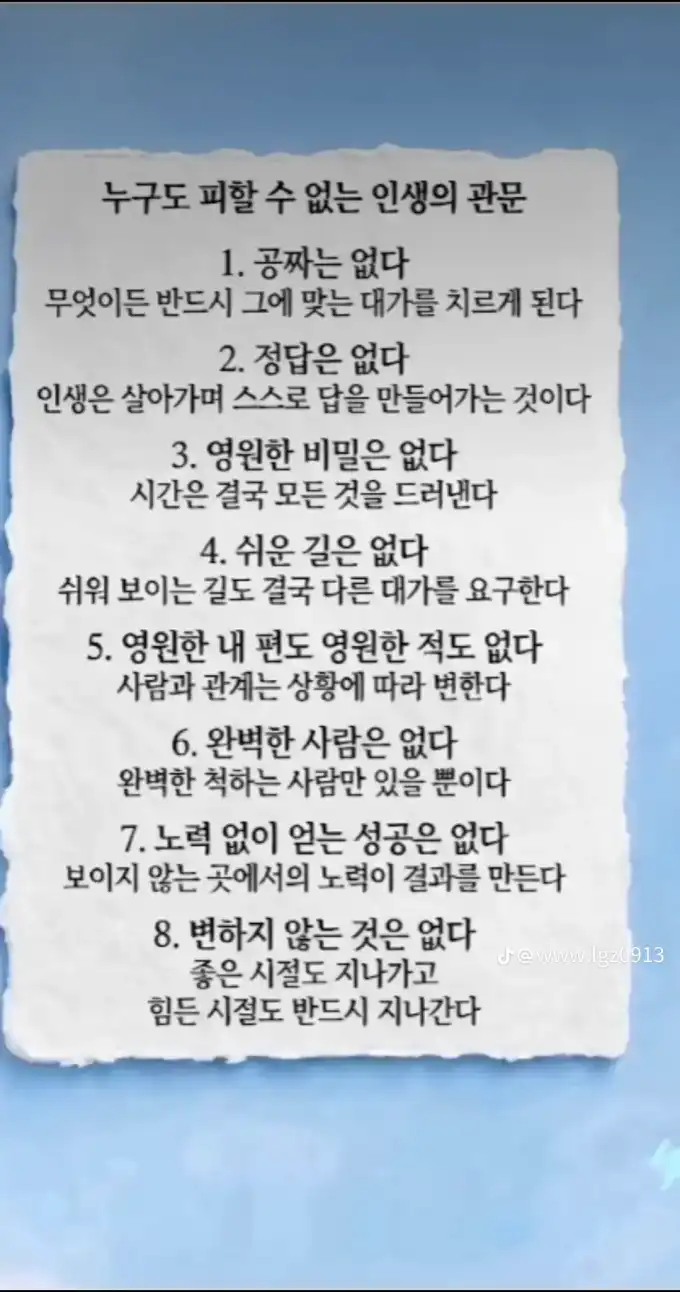 누구도 피할 수 없는 인생의 관문
1. 공짜는 없다
무엇이든 반드시 그에 맞는 대가를 치르게 된다
2. 정답은 없다
인생은 살아가며 스스로 답을 만들어가는 것이다
3. 영원한 비밀은 없다
시간은 결국 모든 것을 드러낸다
4. 쉬운 길은 없다
쉬워 보이는 길도 결국 다른 대가를 요구한다
5. 영원한 내 편도 영원한 적도 없다
사람과 관계는 상황에 따라 변한다
6. 완벽한 사람은 없다
완벽한 척하는 사람만 있을 뿐이다
7. 노력 없이 얻는 성공은 없다
보이지 않는 곳에서의 노력이 결과를 만든다
8. 변하지 않는 것은 없다
@www.lgz0913
좋은 시절도 지나가고
힘든 시절도 반드시 지나간다